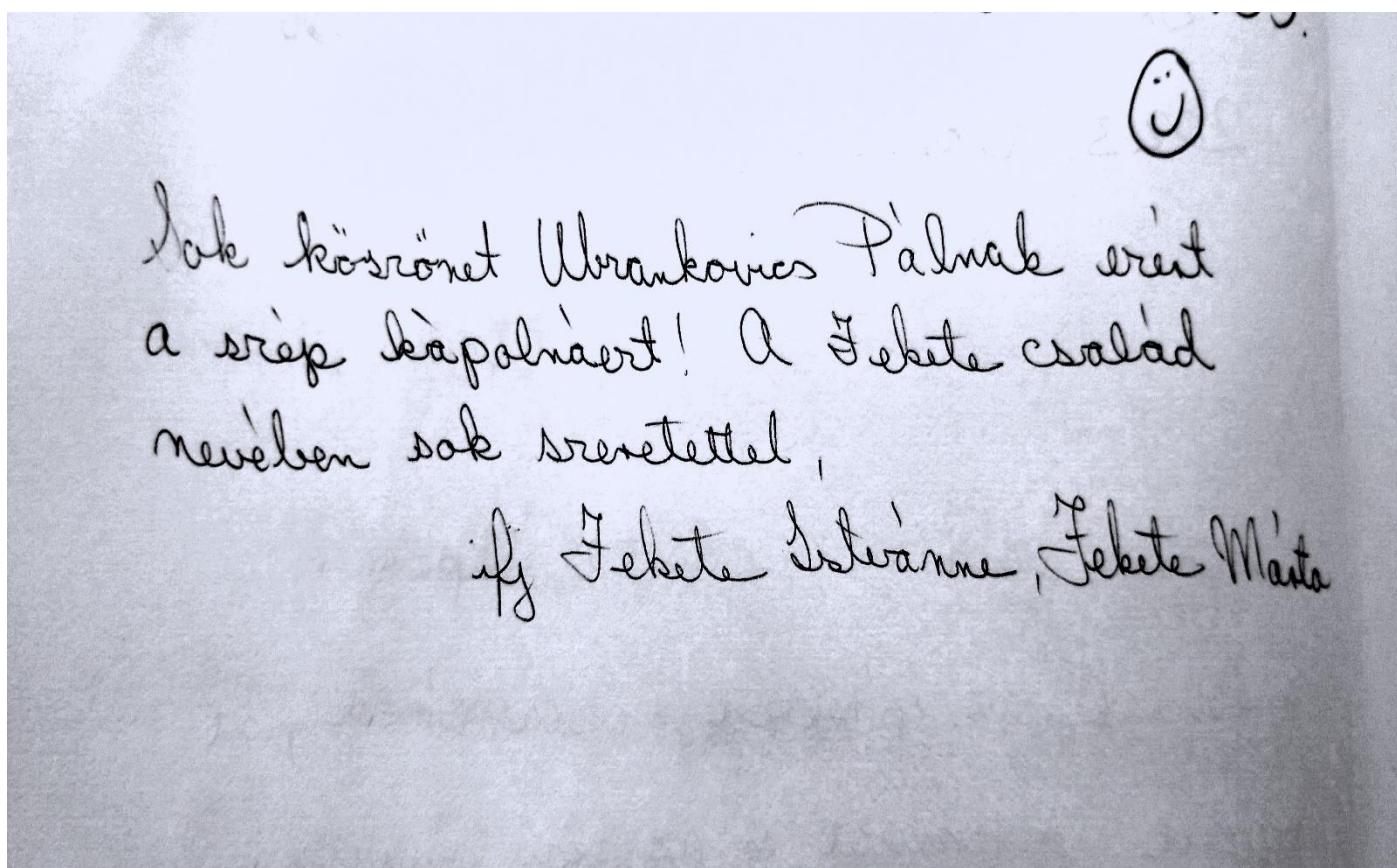 Sok köszönet Ubrankovics Pálnak ezért
a szép kápolnáért! A Fekete család
nevében sok szeretettel,
ifj Fekete Istvánne, Fekete Márta